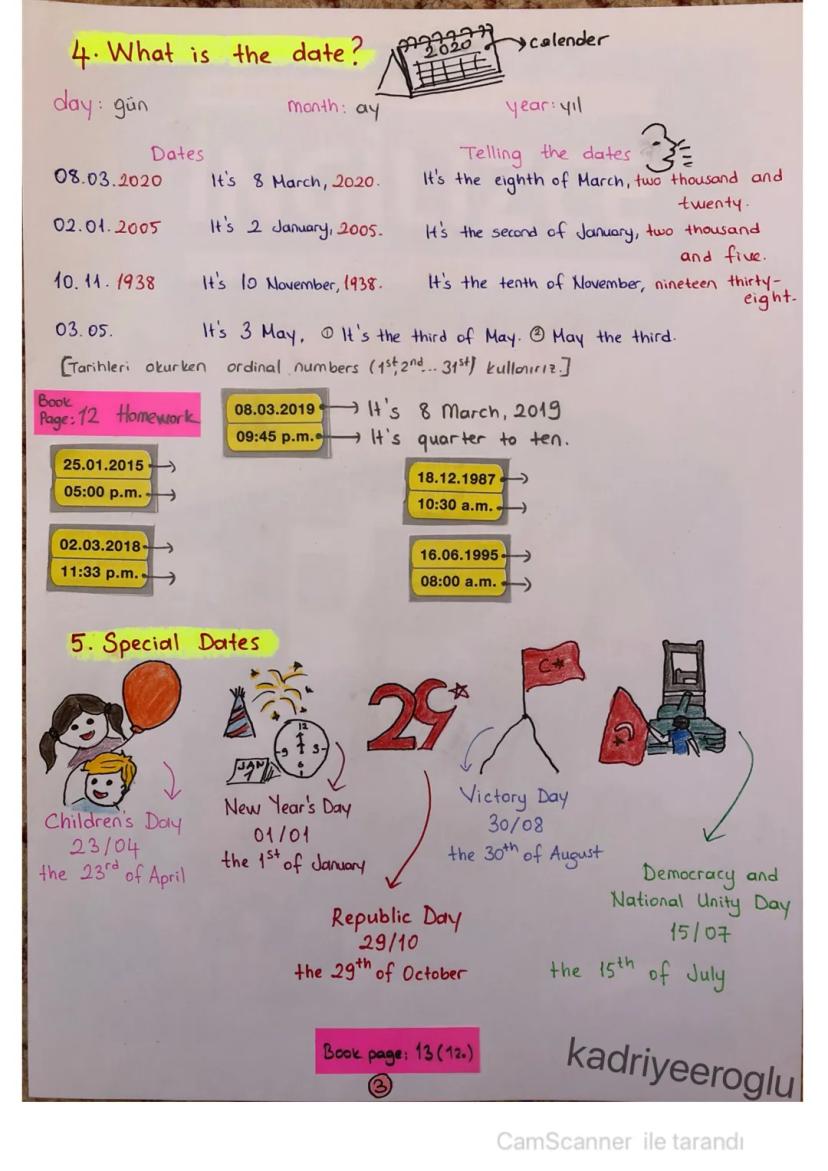 4. What is the date?
2020
calender
day: gün month: ay year: yıl
Dates Telling the dates
08.03.2020 It's 8 March, 2020. It's the eighth of March, two thousand and
twenty.
02.01.2005 It's 2 January, 2005. It's the second of January, two thousand
and five.
10.11.1938 It's 10 November, 1938. It's the tenth of November, nineteen thirty-
eight.
03.05. It's 3 May, ① It's the third of May. ② May the third.
[Tarihleri okurken ordinal numbers (1st, 2nd... 31st) kullanırız.]
Book
Page: 12 Homework
08.03.2019 It's 8 March, 2019
09:45 p.m. It's quarter to ten.
25.01.2015
05:00 p.m.
18.12.1987
10:30 a.m.
02.03.2018
11:33 p.m.
16.06.1995
08:00 a.m.
5. Special Dates
29
12
9 3
6
JAN
1
Children's Day
23/04
the 23rd of April
New Year's Day
01/01
the 1st of January
Victory Day
30/08
the 30th of August
Republic Day
29/10
the 29th of October
Democracy and
National Unity Day
15/07
the 15th of July
Book page: 13 (12.)
3
kadriyeeroglu
CamScanner ile tarandı